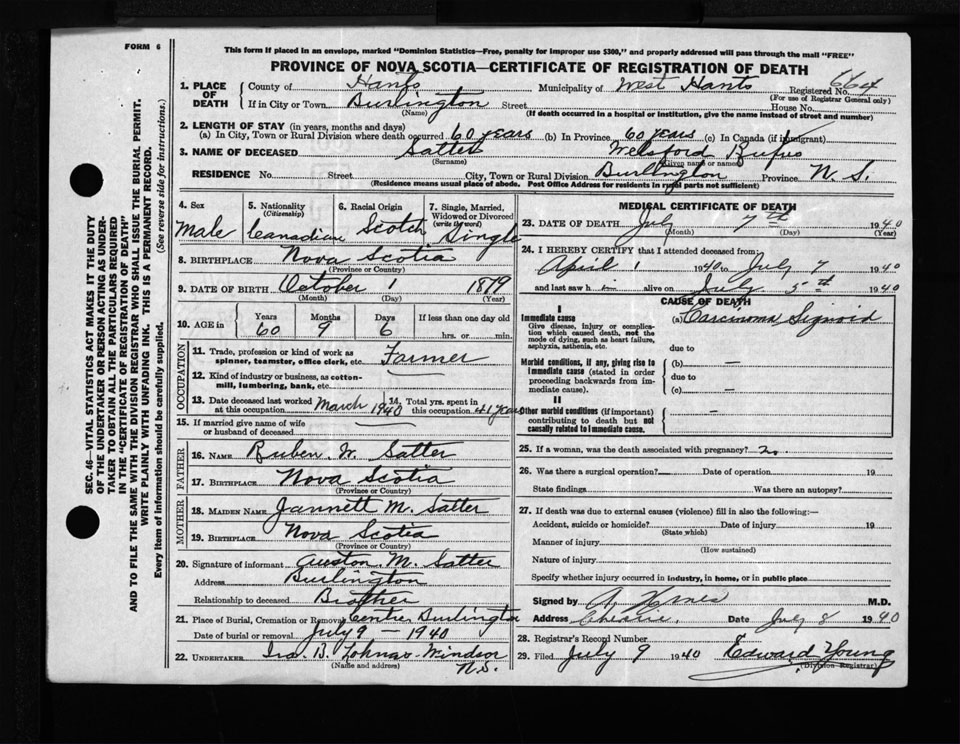 FORM 6
This form if placed in an envelope, marked "Dominion Statistics—Free, penalty for improper use $300," and properly addressed will pass through the mail "FREE"
PROVINCE OF NOVA SCOTIA—CERTIFICATE OF REGISTRATION OF DEATH
1. PLACE OF DEATH County of Hants Municipality of West Hants Registered No. 664
(For use of Registrar General only)
If in City or Town Burlington Street House No.
(Name) (If death occurred in a hospital or institution, give the name instead of street and number)
2. LENGTH OF STAY (in years, months and days)
(a) In City, Town or Rural Division where death occurred 60 years (b) In Province 60 years (c) In Canada (if immigrant)
3. NAME OF DECEASED Salter Welsford Rufus
(Surname) (Given name or names)
RESIDENCE No. Street City, Town or Rural Division Burlington Province N. S.
(Residence means usual place of abode. Post Office Address for residents in rural parts not sufficient)
4. Sex Male
5. Nationality (Citizenship) Canadian
6. Racial Origin Scotch
7. Single, Married, Widowed or Divorced (write the word) Single
8. BIRTHPLACE Nova Scotia
(Province or Country)
9. DATE OF BIRTH October 1 1879
(Month) (Day) (Year)
10. AGE in Years Months Days If less than one day old
60 9 6 hrs. or min.
OCCUPATION
11. Trade, profession or kind of work as spinner, teamster, office clerk, etc. Farmer
12. Kind of industry or business, as cotton-mill, lumbering, bank, etc. —
13. Date deceased last worked at this occupation March 1940
14. Total yrs. spent in this occupation 41 years
15. If married give name of wife or husband of deceased
FATHER
16. NAME Ruben W. Salter
17. BIRTHPLACE Nova Scotia
(Province or Country)
MOTHER
18. MAIDEN NAME Jannett M. Salter
19. BIRTHPLACE Nova Scotia
(Province or Country)
20. Signature of informant Auston M. Salter
Address Burlington
Relationship to deceased Brother
21. Place of Burial, Cremation or Removal Centre Burlington
Date of burial or removal July 9 — 1940
22. UNDERTAKER Ira B. Windsor
(Name and address) N.S.
MEDICAL CERTIFICATE OF DEATH
23. DATE OF DEATH July 7th 1940
(Month) (Day) (Year)
24. I HEREBY CERTIFY that I attended deceased from:
April 1 1940 to July 7 1940
and last saw h alive on July 5th 1940
CAUSE OF DEATH
Immediate cause
Give disease, injury or complication which caused death, not the mode of dying, such as heart failure, asphyxia, asthenia, etc.
(a) Carcinoma Sigmoid
due to
Morbid conditions, if any, giving rise to immediate cause (stated in order proceeding backwards from immediate cause).
(b) —
due to
(c) —
II
Other morbid conditions (if important) contributing to death but not causally related to immediate cause.
—
25. If a woman, was the death associated with pregnancy? no.
26. Was there a surgical operation? Date of operation 19
State findings Was there an autopsy?
27. If death was due to external causes (violence) fill in also the following:—
Accident, suicide or homicide? Date of injury 19
(State which)
Manner of injury
(How sustained)
Nature of injury
Specify whether injury occurred in industry, in home, or in public place
Signed by M.D.
Address Date July 8 1940
28. Registrar's Record Number
29. Filed July 9 1940 Edward Young
(Division Registrar)
SEC. 46—VITAL STATISTICS ACT MAKES IT THE DUTY
OF THE UNDERTAKER OR PERSON ACTING AS UNDER-
TAKER TO OBTAIN ALL THE PARTICULARS REQUIRED
IN THE "CERTIFICATE OF REGISTRATION OF DEATH"
AND TO FILE THE SAME WITH THE DIVISION REGISTRAR WHO SHALL ISSUE THE BURIAL PERMIT.
WRITE PLAINLY WITH UNFADING INK. THIS IS A PERMANENT RECORD.
Every item of information should be carefully supplied. (See reverse side for instructions.)